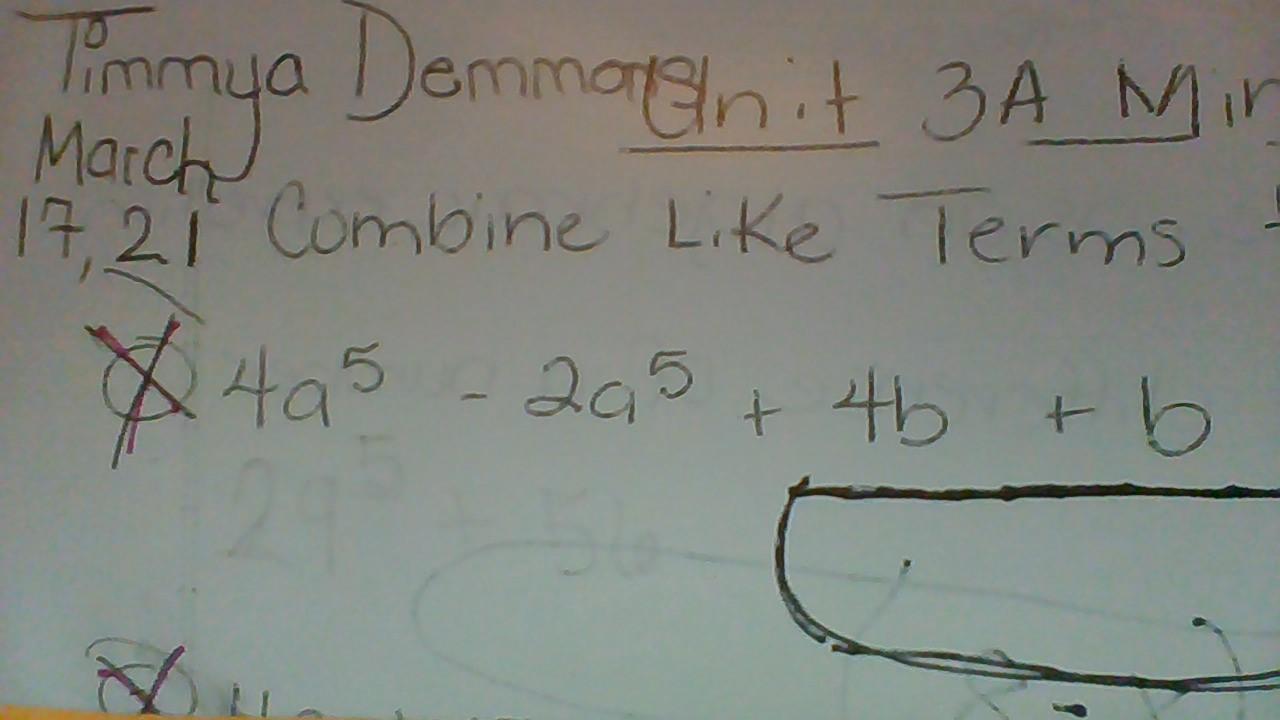 Timmya Demmons Unit 3A Min
March
17, 21 Combine Like Terms
4a⁵ - 2a⁵ + 4b + b
2a⁵ + 5b